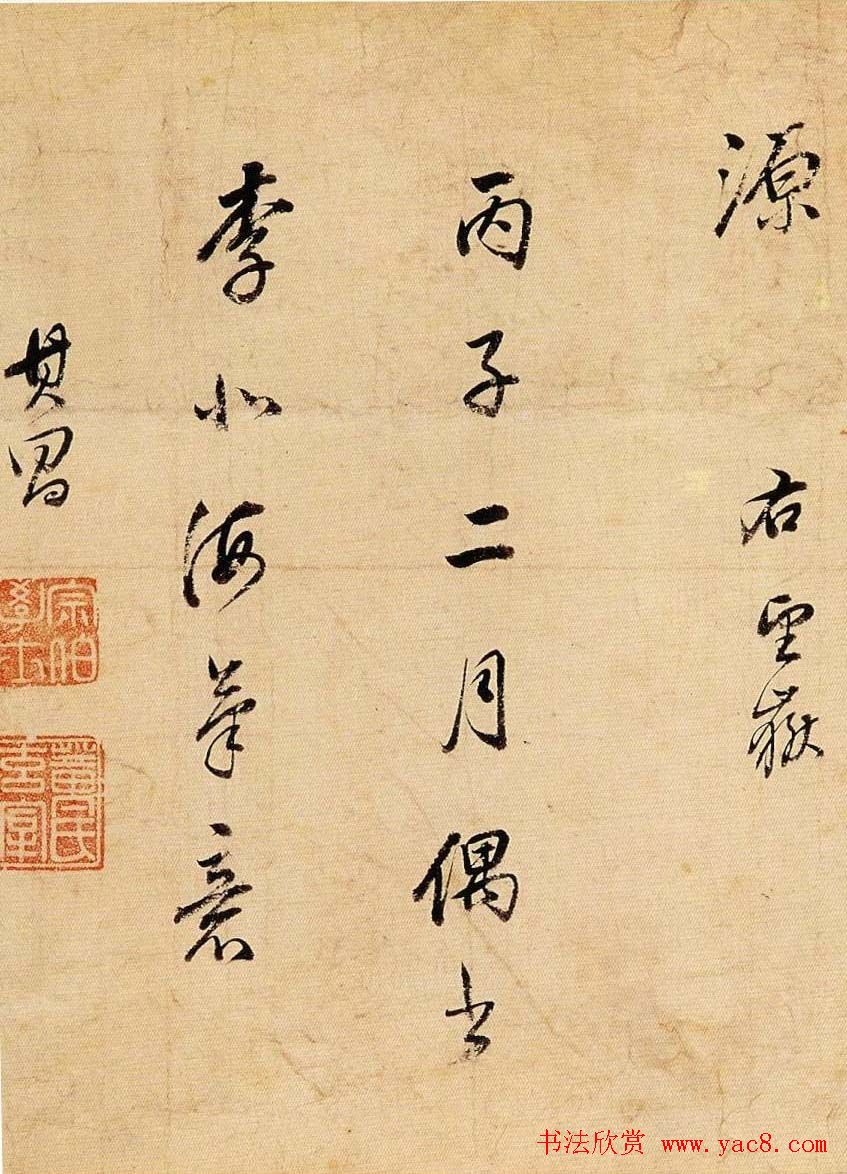 源　右望嶽
丙子二月偶书
李北海筆意
其昌
宗伯學士
董氏玄宰
书法欣赏 www.yac8.com